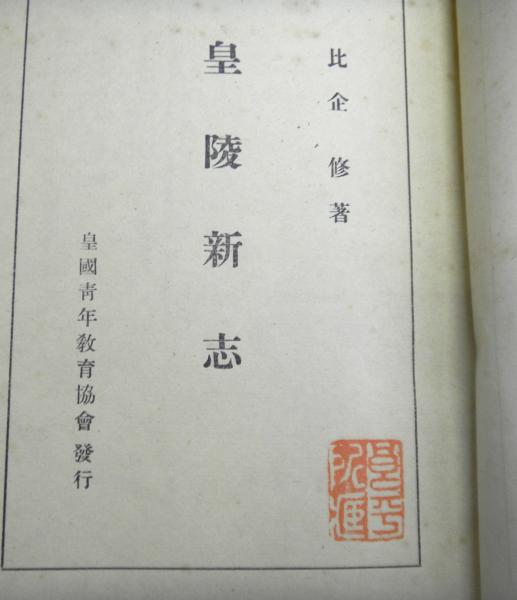 比企修著
皇陵新志
皇國靑年敎育協會發行